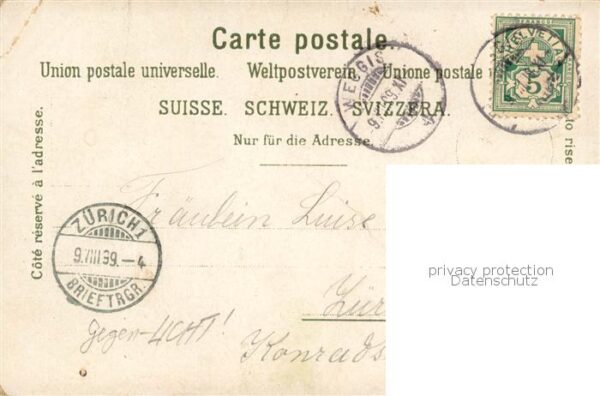 Carte postale.
Union postale universelle. Weltpostverein. Unione postale u
SUISSE. SCHWEIZ. SVIZZERA.
Nur für die Adresse.
Côté réservé à l'adresse.
to rise
HELVETIA
5
WEGGIS
ZÜRICH 1
9.VIII.99.–4
BRIEFTRGR.
Fräulein Luise
Zür
Konrads
gegen-LICHT!
privacy protection
Datenschutz